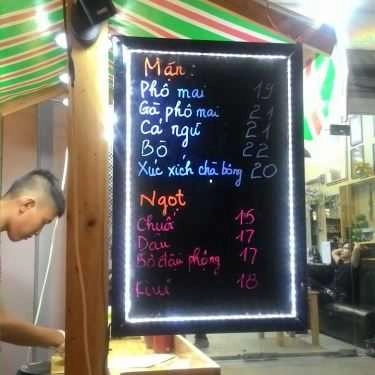 Mặn:
Phô mai 19
Gà phô mai 21
Cá ngừ 21
Bò 22
Xúc xích chà bông 20
Ngọt
Chuối 15
Dâu 17
Bơ đậu phộng 17
Kiwi 18